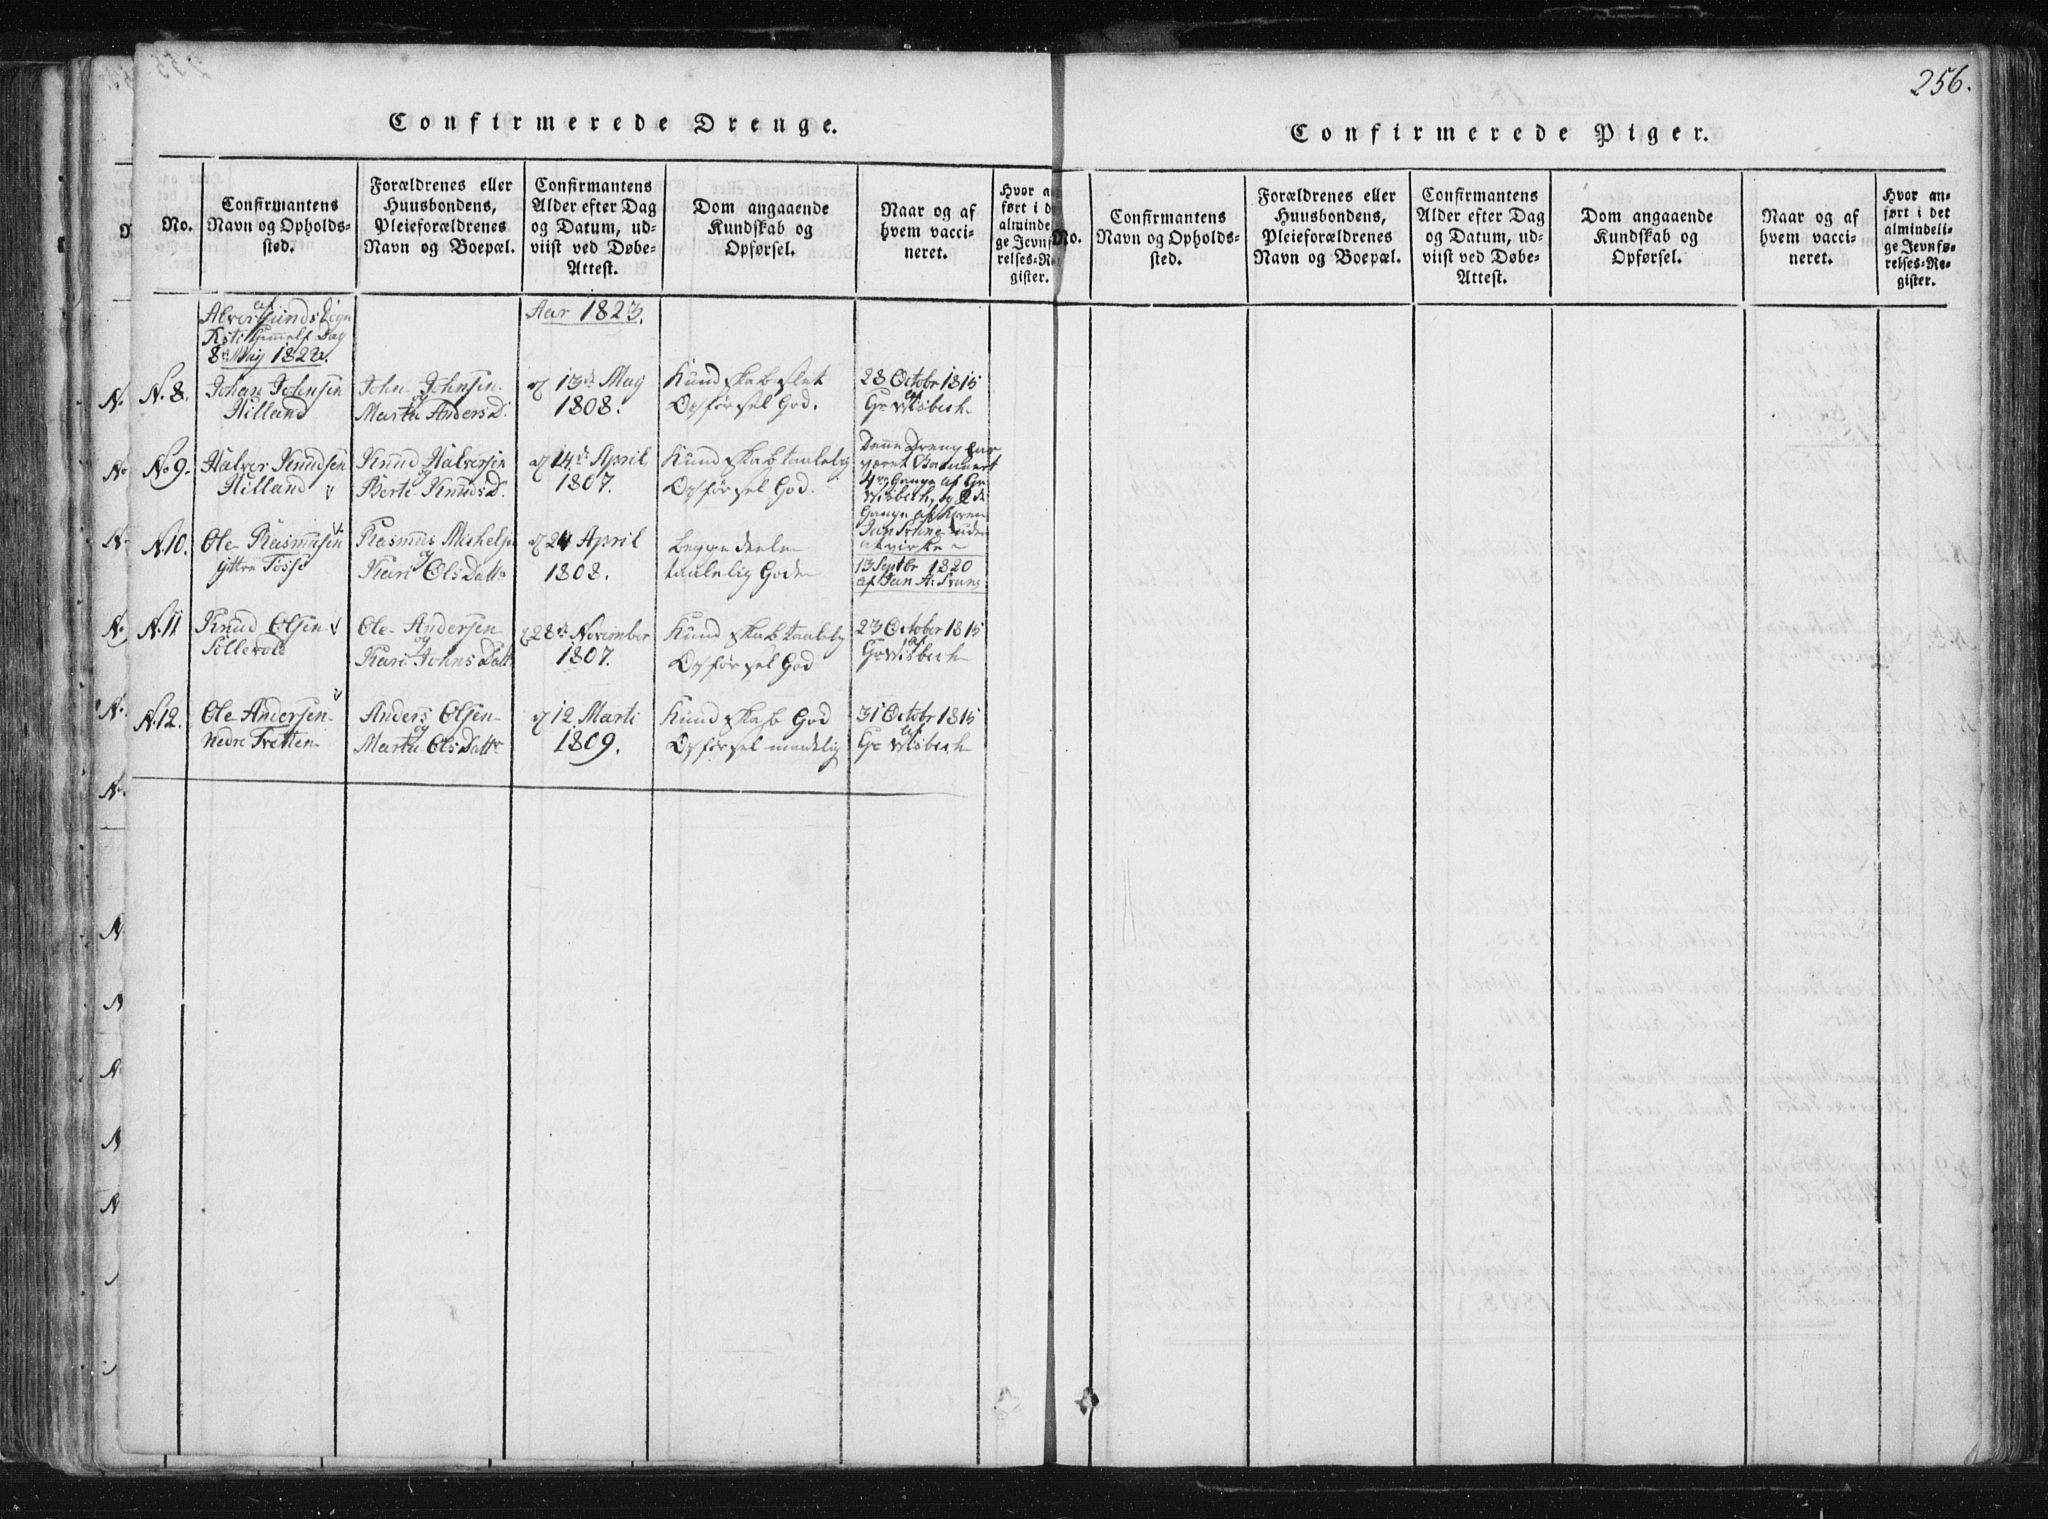 256.
Confirmerede Drenge.
No.
Confirmantens
Navn og Opholds-
sted.
Forældrenes eller
Huusbondens,
Pleieforældrenes
Navn og Boepæl.
Confirmantens
Alder efter Dag
og Datum, ud-
viist ved Døbe-
Attest.
Dom angaaende
Kundskab og
Opførsel.
Naar og af
hvem vacci-
neret.
Hvor an-
ført i det
almindeli-
ge Jevnfø-
relses-Re-
gister.
af
Alversunds Sogn
Dag
8de May 1822.
Aar 1823.
N. 8.
Johan Johnsen
Hilland
John Johnsen
og
Marta Andersd.
d 13de May
1808.
Kundskab slet
Opførsel God.
28 Octobr 1815
af
Gr Wisbech
No 9.
Halver Knudsen
Hilland
Knud Halversen
og
Berte Knudsd.
d 14de April
1807.
Kundskab taalelig
Opførsel God.
Denne Dreng har
været Vaccinert
4re Gange af Gr
Wisbech, og 2de
Gange af
uden
Virke
N. 10.
Ole Rasmusen
Yttre Fosse
Rasmus Michelsen
og
Kari Ols Datter
d 24 April
1808.
begge deele
taalelig Gode
13 Septbr 1820
af Jan A:
N. 11
Knud Olsen
Ole Andersen
og
Kari Johns Datt
d 28de November
1807.
Kundskab taalelig
Opførsel God
23 October 1815
af
Gr Wisbech
N. 12.
Ole Andersen
Nedre Tvetten
Anders Olsen
og
Marta Ols Datter
d 12 Marti
1809.
Kundskab God
Opførsel maadelig
31 Octobr 1815
af
Gr Wisbech
Confirmerede Piger.
No.
Confirmantens
Navn og Opholds-
sted.
Forældrenes eller
Huusbondens,
Pleieforældrenes
Navn og Boepæl.
Confirmantens
Alder efter Dag
og Datum, ud-
viist ved Døbe-
Attest.
Dom angaaende
Kundskab og
Opførsel.
Naar og af
hvem vacci-
neret.
Hvor an-
ført i det
almindeli-
ge Jevnfø-
relses-Re-
gister.